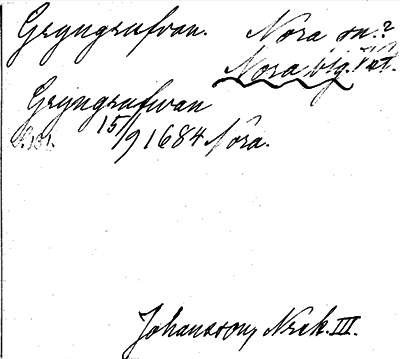 Gryngrufvan. Nora sn.?
Nora bsg. Vstm.
Gryngrufwan
S. 131. 15/9 1684 Nora.
Johansson, Norak. III.